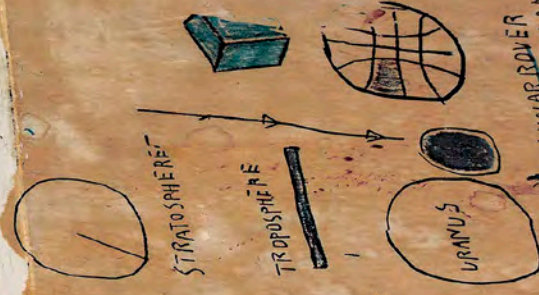 STRATOSPHERET
TROPOSPHERE
URANUS
ROVER